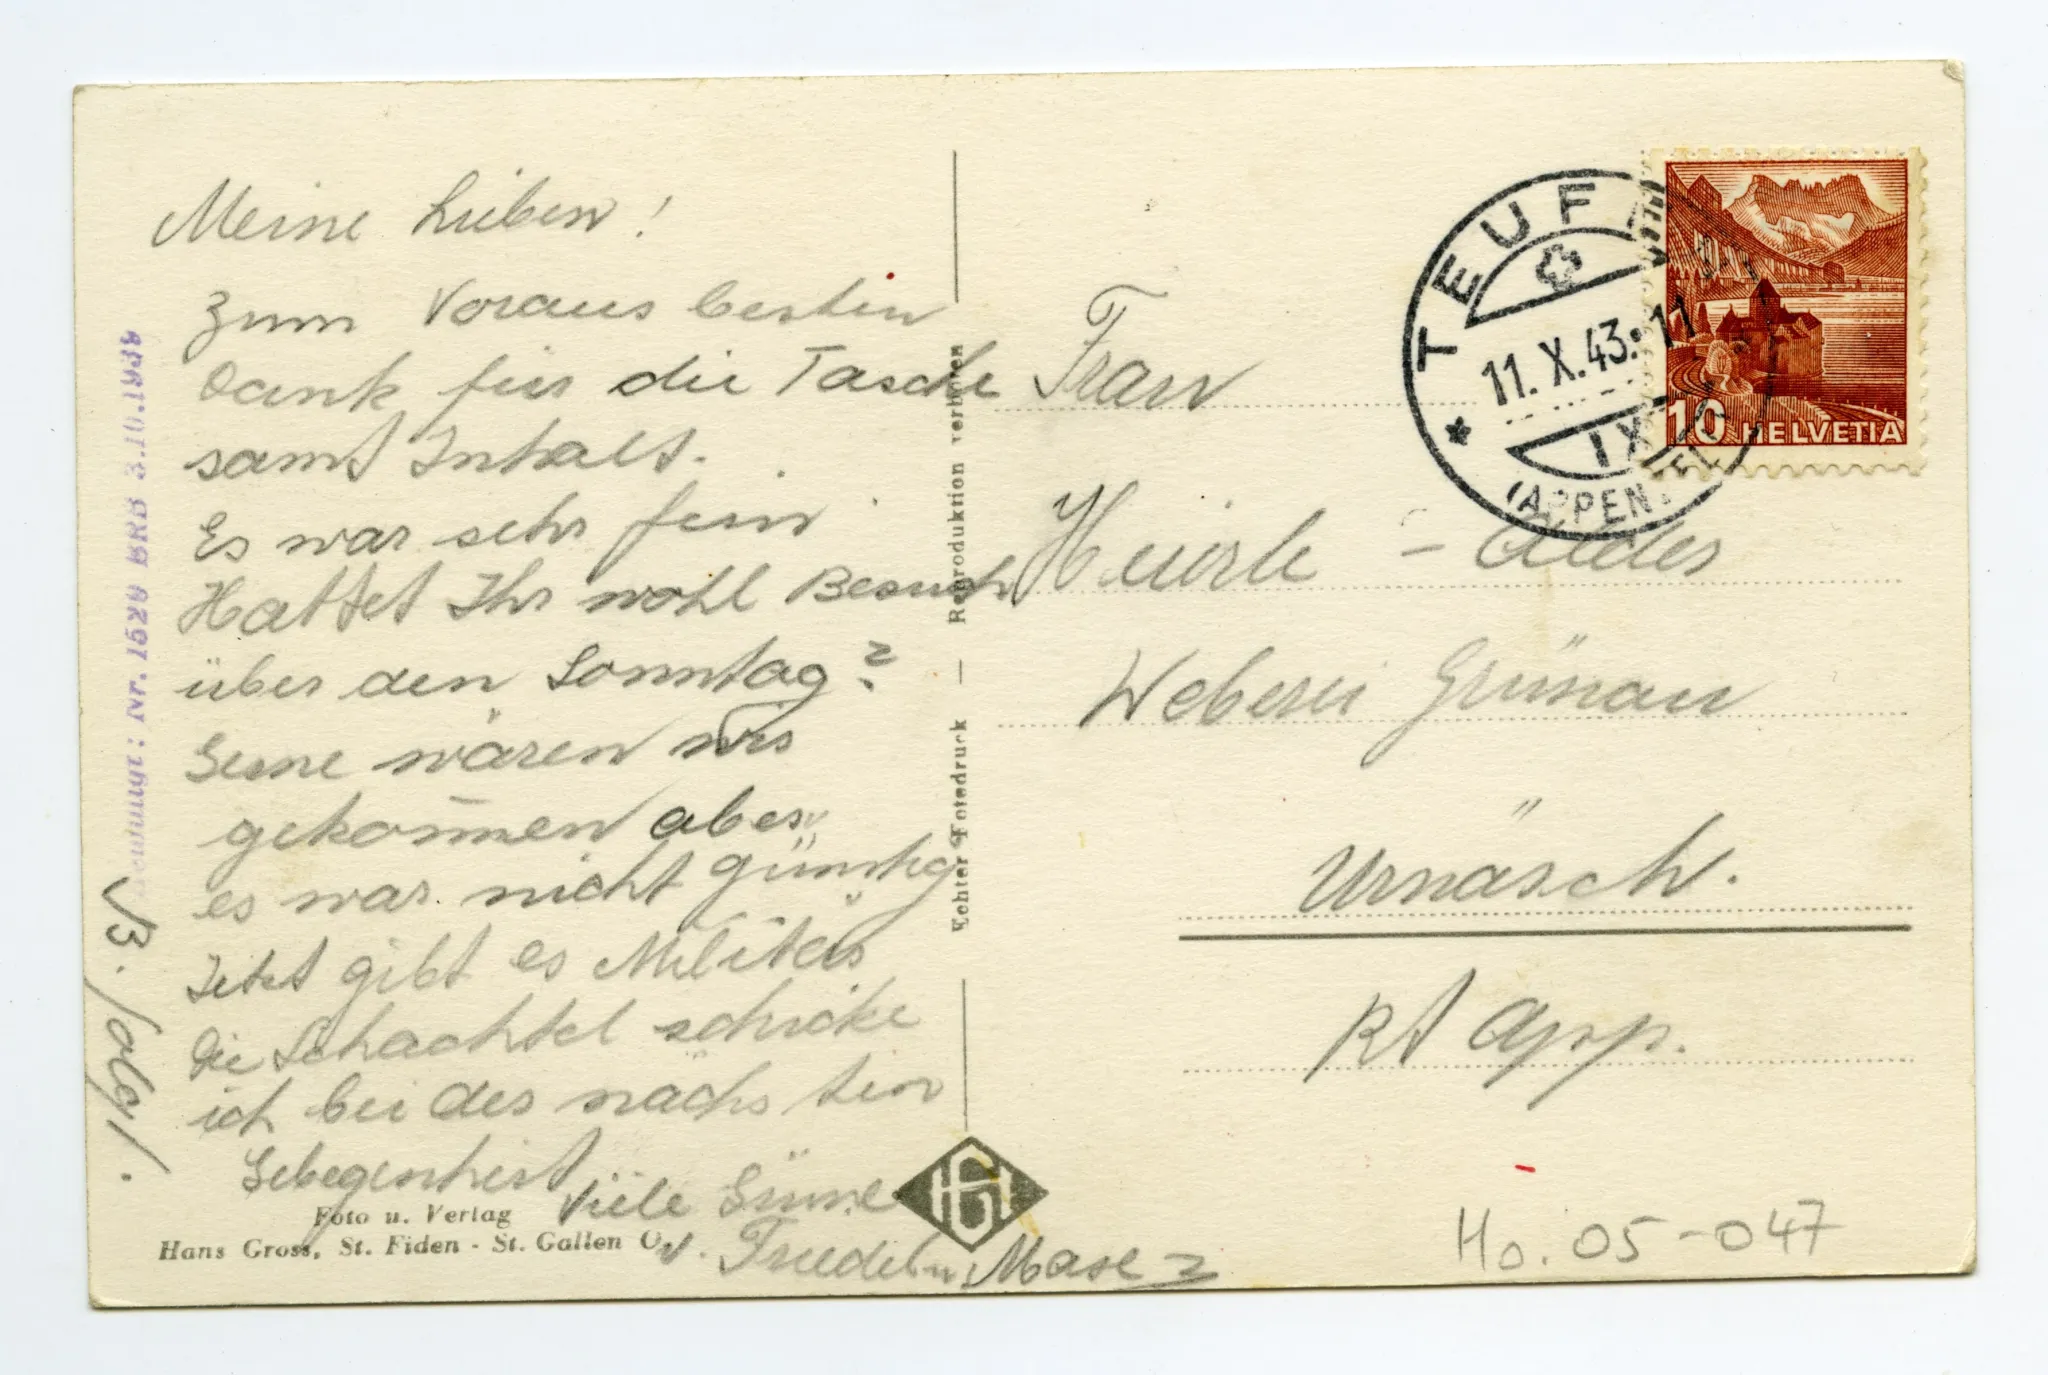 Meine Lieben!
Zum Voraus besten
Dank für die Tasche
samt Inhalt.
Es war sehr fein
Hattet Ihr wohl Besuch
über den Sonntag?
Gerne wären wir
gekom̄en aber
es war nicht günstig
Jetzt gibt es Militär
Die Schachtel schicke
ich bei der nächsten
Gelegenheit
Viele Grüsse
v. Friedel u.
Nr. 1629 BRB 3.10.1939
Foto u. Verlag
Hans Gross, St. Fiden - St. Gallen O.
Echter Fotodruck — Reproduktion verboten
HG
Frau
Heierle - Alder
Weberei Grünau
Urnäsch.
Kt App.
TEUFEN
11.X.43.11
IX
(APPENZELL)
10 HELVETIA
Ho. 05-047